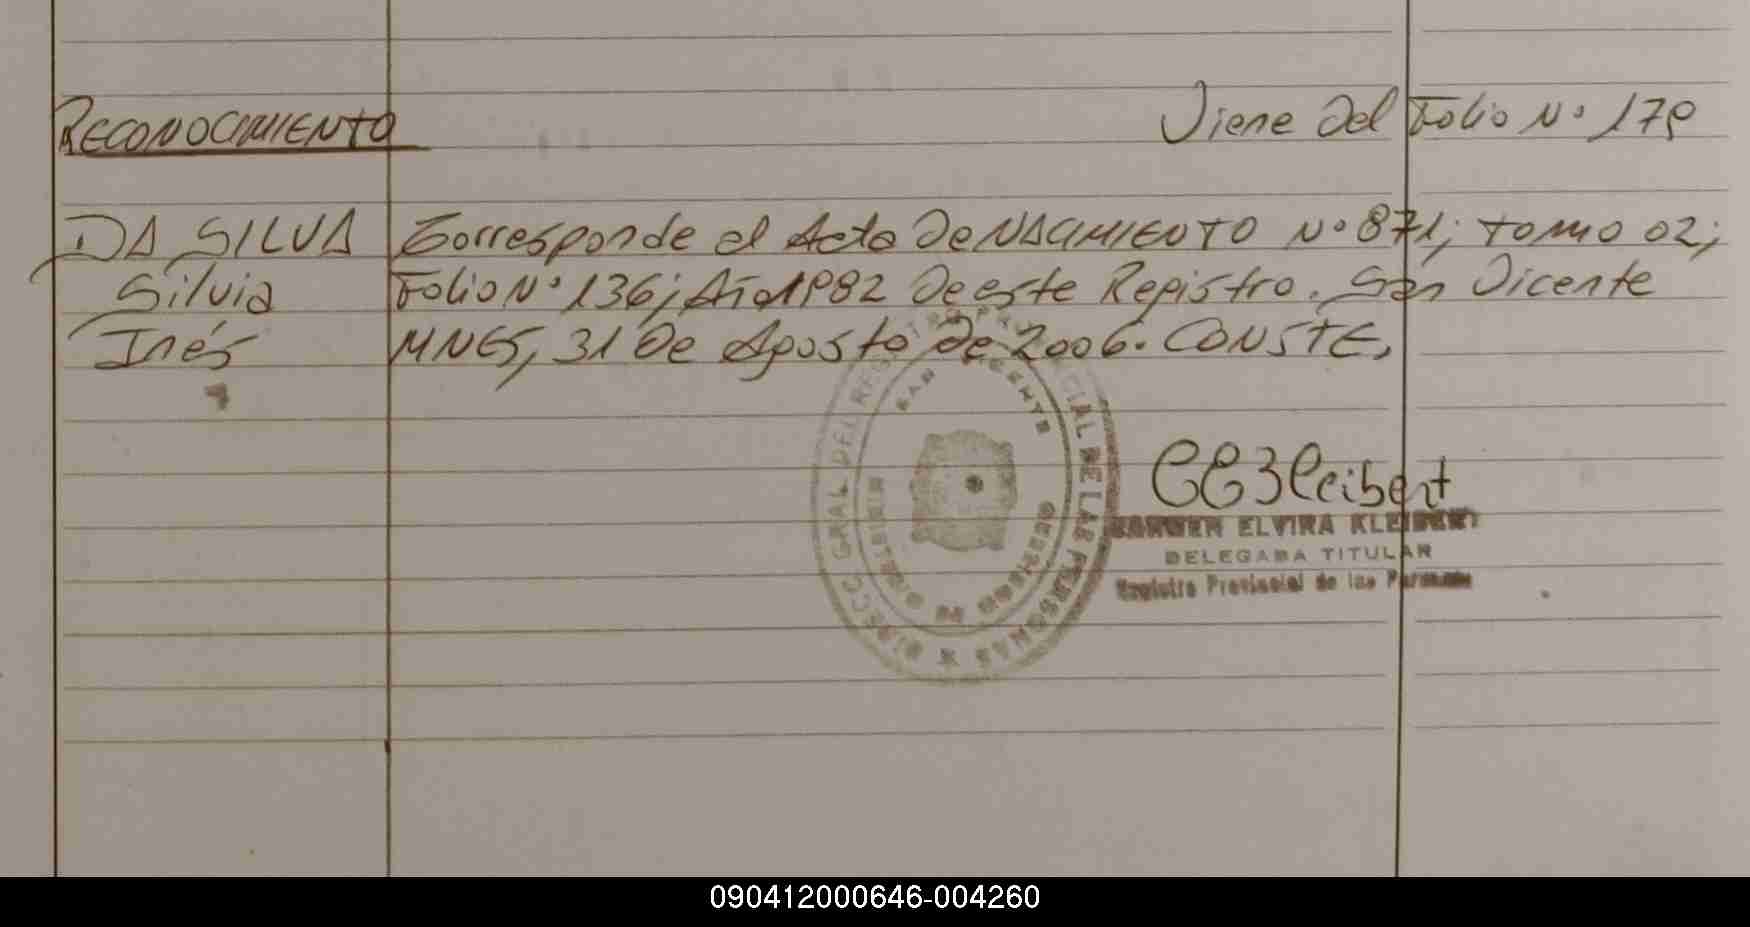 RECONOCIMIENTO
Viene Del Folio Nº 179
DA SILVA Corresponde al Acta De NACIMIENTO Nº 871; tomo 02;
Silvia Folio Nº 136; Año 1982 De este Registro. San Vicente
Inés MNES, 31 De Agosto De 2006. CONSTE.
DIRECC. GRAL. DEL REGISTRO PROVINCIAL DE LAS PERSONAS
SAN VICENTE
CARMEN ELVIRA KLEIBERT
DELEGADA TITULAR
Registro Provincial de las Personas
090412000646-004260